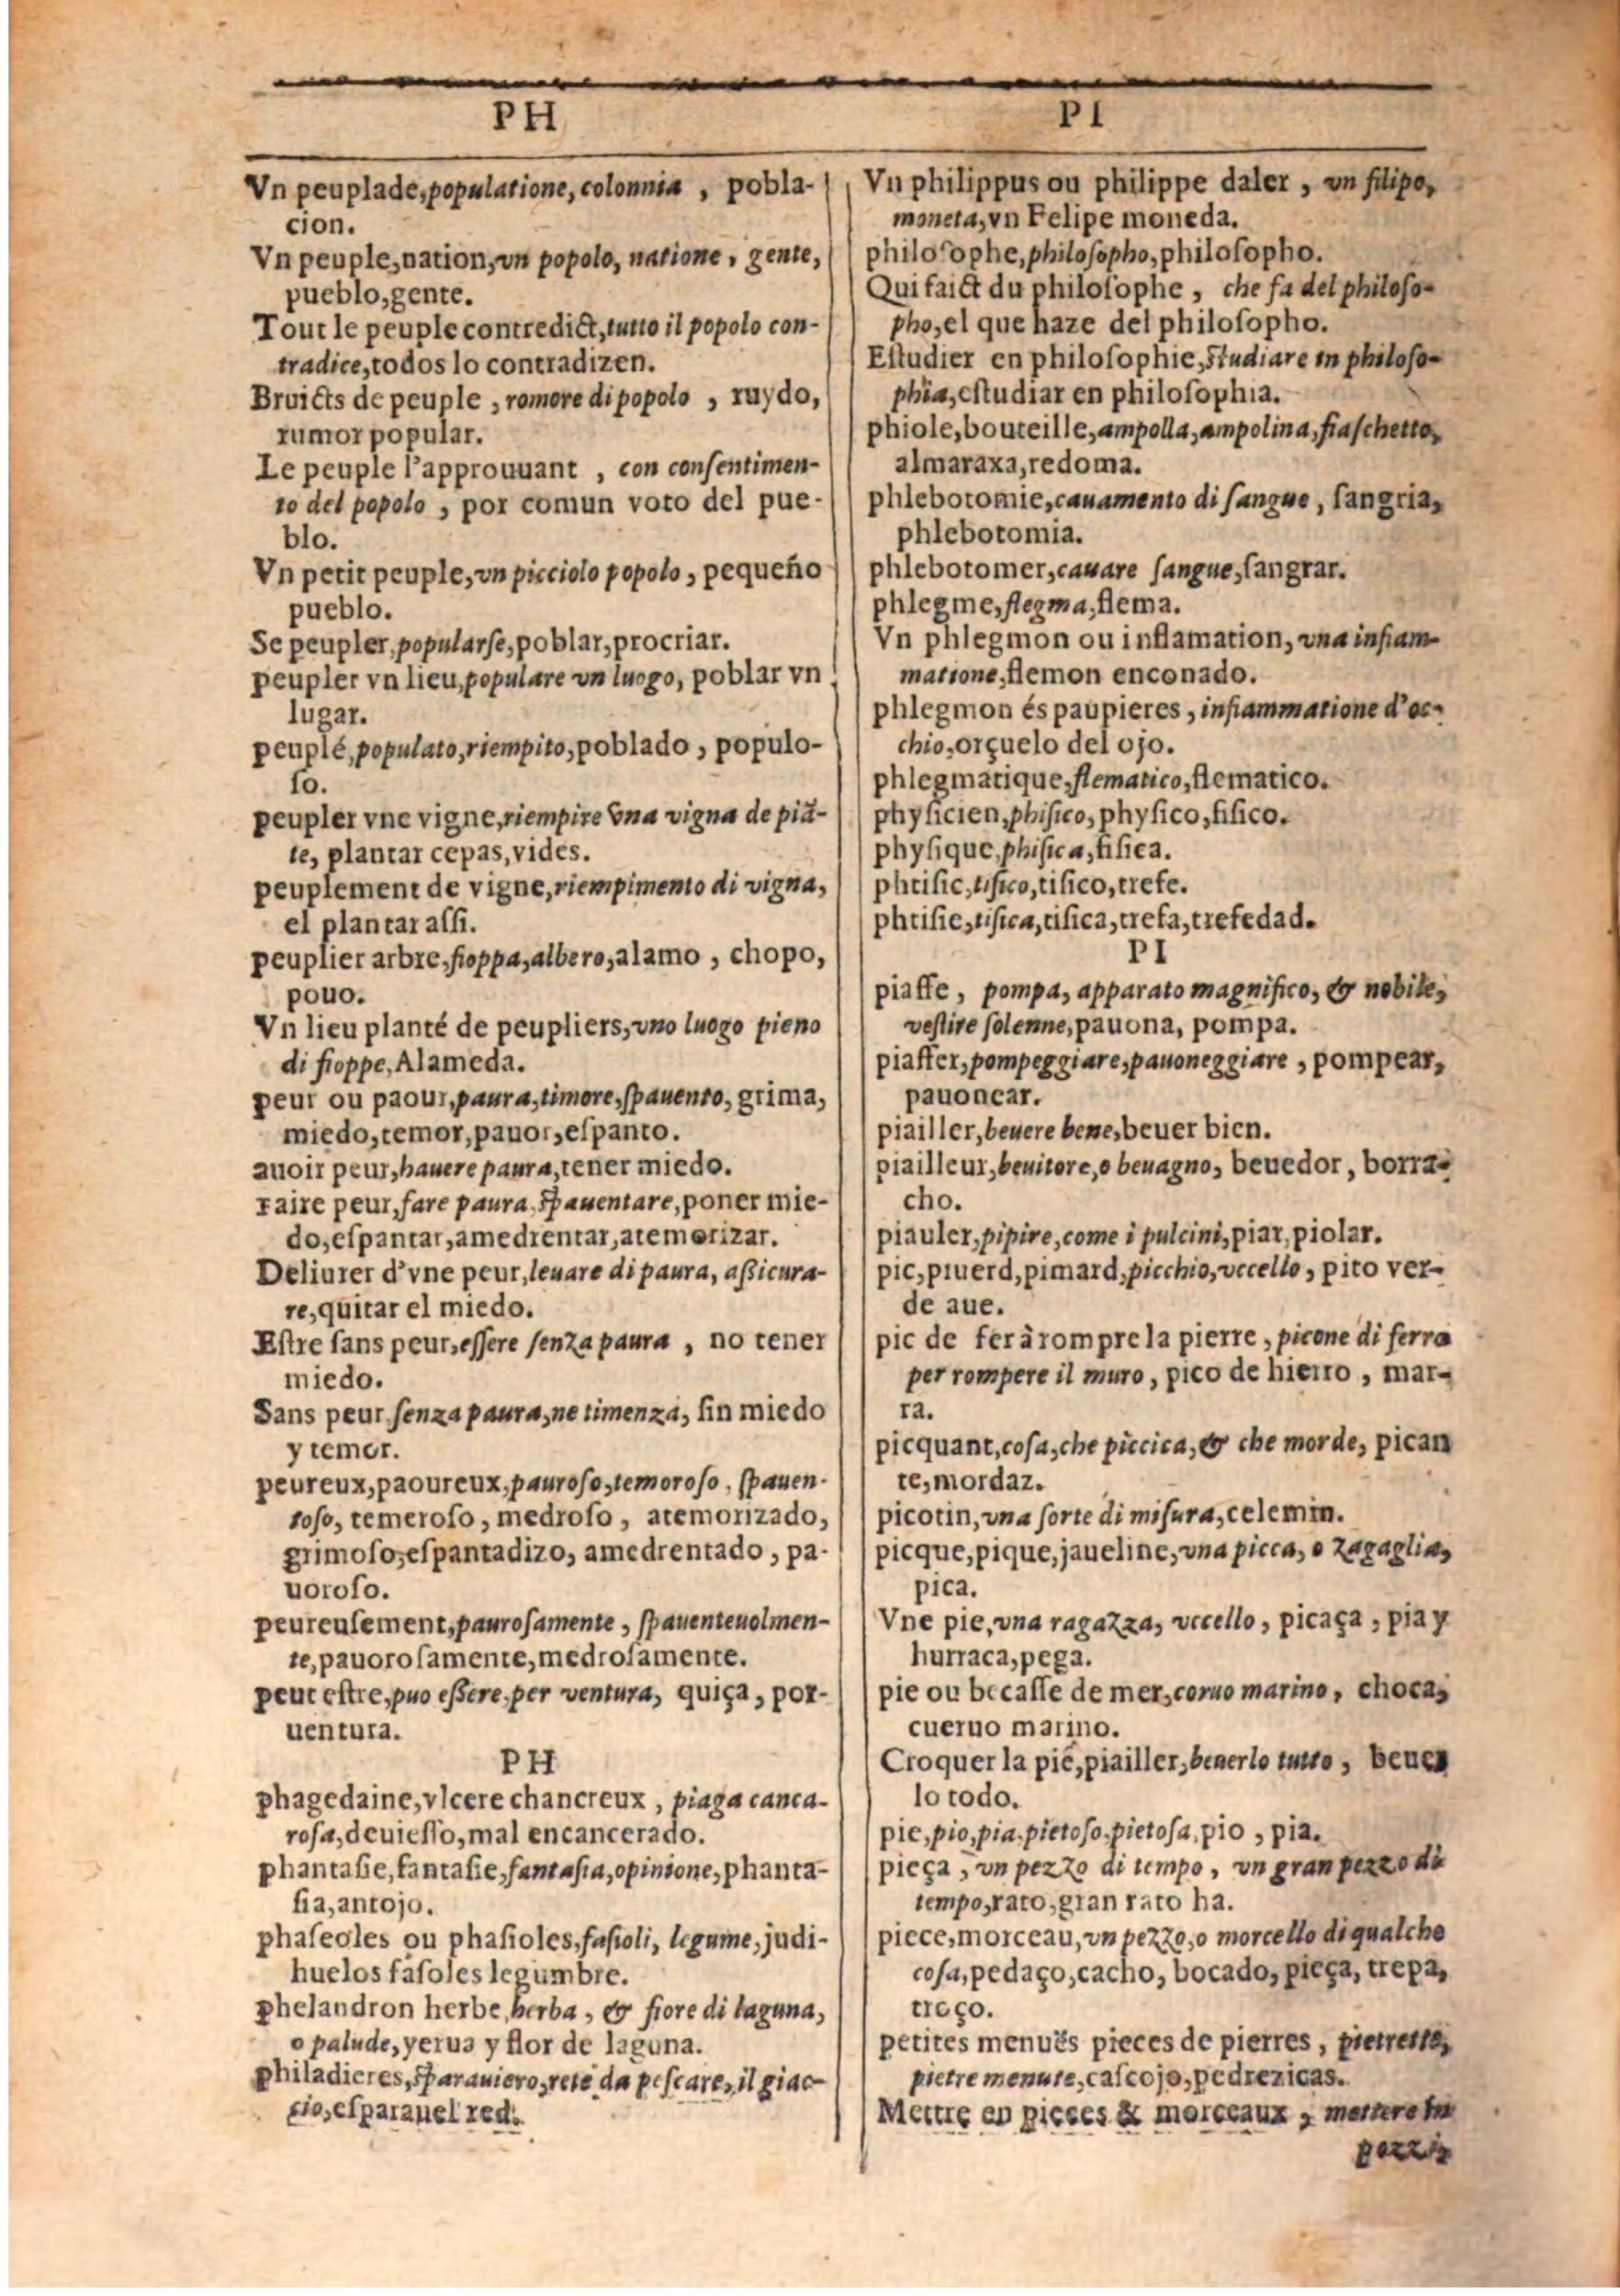 PH
Vn peuplade, populatione, colonnia , pobla-
cion.
Vn peuple, nation, vn popolo, natione, gente,
pueblo, gente.
Tout le peuple contredict, tutto il popolo con-
tradice, todos lo contradizen.
Bruicts de peuple , romore di popolo , ruydo,
rumor popular.
Le peuple l'approuuant , con conſentimen-
to del popolo , por comun voto del pue-
blo.
Vn petit peuple, vn picciolo popolo , pequeño
pueblo.
Se peupler, popularſe, poblar, procriar.
peupler vn lieu, populare vn luogo, poblar vn
lugar.
peuplé, populato, riempito, poblado , populo-
ſo.
peupler vne vigne, riempire vna vigna de piã-
te, plantar cepas, vides.
peuplement de vigne, riempimento di vigna,
el plantar aſſi.
peuplier arbre, fioppa, albero, alamo , chopo,
pouo.
Vn lieu planté de peupliers, vno luogo pieno
di fioppe, Alameda.
peur ou paour, paura, timore, ſpauento, grima,
miedo, temor, pauor, eſpanto.
auoir peur, hauere paura, tener miedo.
Faire peur, fare paura, ſpauentare, poner mie-
do, eſpantar, amedrentar, atemorizar.
Deliurer d'vne peur, leuare di paura, aſsicura-
re, quitar el miedo.
Eſtre ſans peur, eſſere ſenza paura , no tener
miedo.
Sans peur, ſenza paura, ne timenza, ſin miedo
y temor.
peureux, paoureux, pauroſo, temoroſo, ſpauen-
toſo, temeroſo, medroſo, atemorizado,
grimoſo, eſpantadizo, amedrentado , pa-
uoroſo.
peureuſement, pauroſamente , ſpauenteuolmen-
te, pauoroſamente, medroſamente.
peut eſtre, puo eſsere, per ventura, quiça, por-
uentura.
PH
phagedaine, vlcere chancreux , piaga canca-
roſa, deuieſſo, mal encancerado.
phantaſie, fantaſie, fantaſia, opinione, phanta-
ſia, antojo.
phaſeoles ou phaſioles, faſioli, legume, judi-
huelos faſoles legumbre.
phelandron herbe, herba , & fiore di laguna,
o palude, yerua y flor de laguna.
philadieres, ſparauiero, rete da peſcare, il giac-
cio, eſparauel red.
PI
Vn philippus ou philippe daler , vn filipo,
moneta, vn Felipe moneda.
philoſophe, philoſopho, philoſopho.
Qui faict du philoſophe , che fa del philoſo-
pho, el que haze del philoſopho.
Eſtudier en philoſophie, ſtudiare in philoſo-
phia, eſtudiar en philoſophia.
phiole, bouteille, ampolla, ampolina, fiaſchetto,
almaraxa, redoma.
phlebotomie, cauamento di ſangue , ſangria,
phlebotomia.
phlebotomer, cauare ſangue, ſangrar.
phlegme, flegma, flema.
Vn phlegmon ou inflamation, vna infiam-
matione, flemon enconado.
phlegmon és paupieres , infiammatione d'oc-
chio, orçuelo del ojo.
phlegmatique, flematico, flematico.
phyſicien, phiſico, phyſico, fiſico.
phyſique, phiſica, fiſica.
phtiſic, tiſico, tiſico, trefe.
phtiſie, tiſica, tiſica, trefa, trefedad.
PI
piaffe, pompa, apparato magnifico, & nobile,
veſtire ſolenne, pauona, pompa.
piaffer, pompeggiare, pauoneggiare , pompear,
pauonear.
piailler, beuere bene, beuer bien.
piailleur, beuitore, o beuagno, beuedor, borra-
cho.
piauler, pipire, come i pulcini, piar, piolar.
pic, piuerd, pimard, picchio, vccello, pito ver-
de aue.
pic de fer à rompre la pierre , picone di ferro
per rompere il muro , pico de hierro , mar-
ra.
picquant, coſa, che piccica, & che morde, pican
te, mordaz.
picotin, vna ſorte di miſura, celemin.
picque, pique, jaueline, vna picca, o zagaglia,
pica.
Vne pie, vna ragazza, vccello , picaça , pia y
hurraca, pega.
pie ou becaſſe de mer, coruo marino , choca,
cueruo marino.
Croquer la pie, piailler, beuerlo tutto , beuer
lo todo.
pie, pio, pia, pietoſo, pietoſa, pio , pia.
pieça , vn pezzo di tempo , vn gran pezzo di
tempo, rato, gran rato ha.
piece, morceau, vn pezzo, o morcello di qualche
coſa, pedaço, cacho, bocado, pieça, trepa,
troço.
petites menuës pieces de pierres , pietrette,
pietre menute, caſcojo, pedrezicas.
Mettre en pieces & morceaux , mettere in
pezzi,